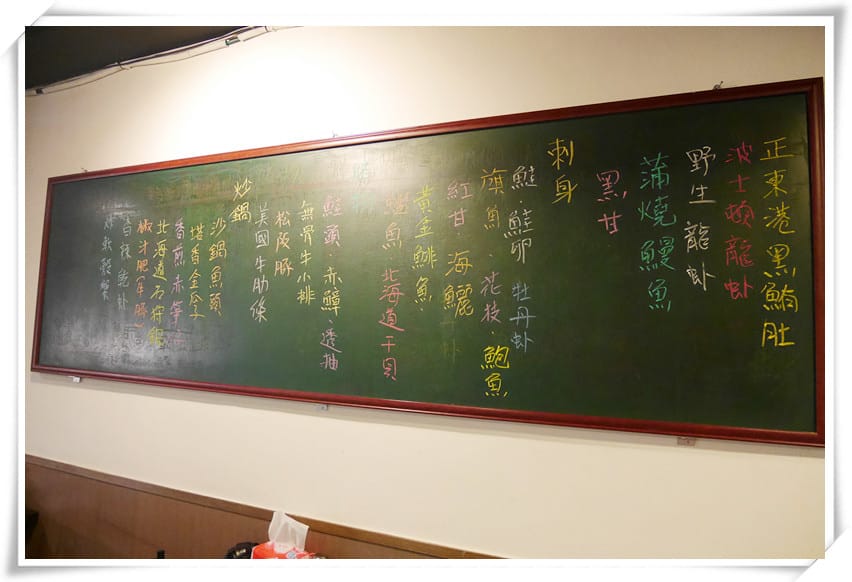 正東港黑鮪肚
波士頓龍虾
野生龍虾
蒲燒鰻魚
黑甘
刺身
鮭.鮭卵 牡丹虾
旗魚.花枝.鮑魚
紅甘.海鱺
黃金鯡魚.
魚.北海道干貝
鮭頭.赤鯮.透抽
無骨牛小排
松阪豚
美國牛肋條
炒鍋
沙鍋魚頭
塔香金瓜子
香煎赤筆
北海道石狩鍋
椒汁肥